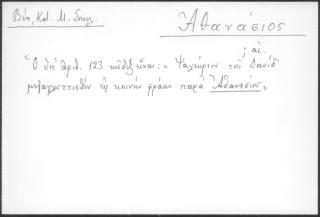 Βέη, Κατ. Μ. Σπηλ.
Ἀθανάσιος
; αἰ.
"Ὁ ὑπ' ἀριθ. 123 κῶδιξ εἶναι: "Ψαλτήριον τοῦ Δαυίδ
μεταγλωττισθέν εἰς κοινήν φράσιν παρά Ἀθανασίου"